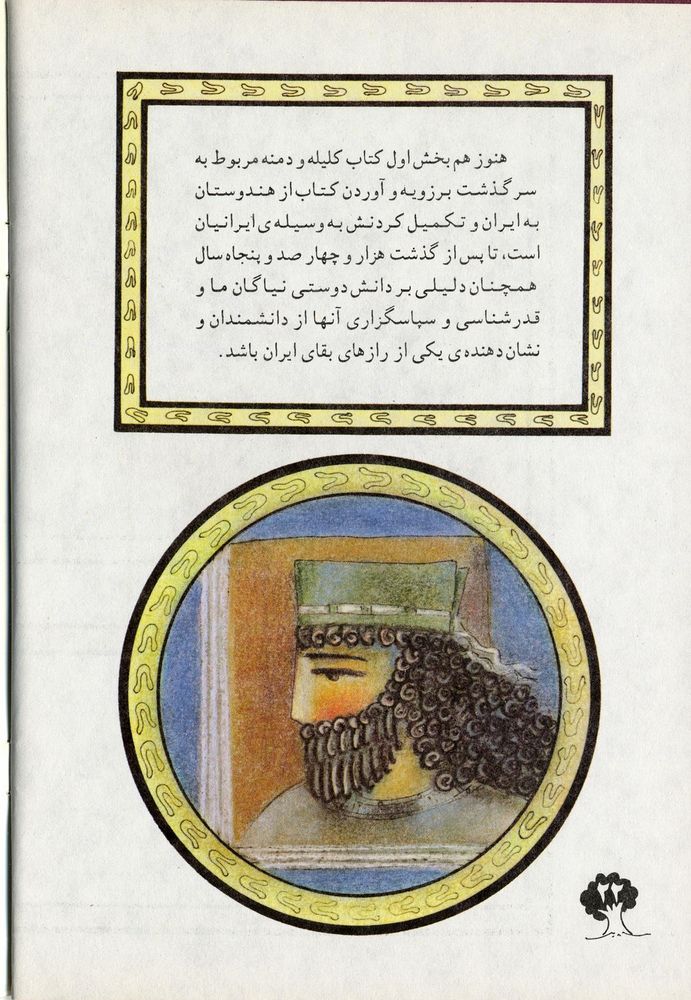 هنوز هم بخش اول کتاب کلیله و دمنه مربوط به
سرگذشت برزویه و آوردن کتاب از هندوستان
به ایران و تکمیل کردنش به وسیله‌ی ایرانیان
است، تا پس از گذشت هزار و چهار صد و پنجاه سال
همچنان دلیلی بر دانش دوستی نیاگان ما و
قدرشناسی و سپاسگزاری آنها از دانشمندان و
نشان دهنده‌ی یکی از رازهای بقای ایران باشد.